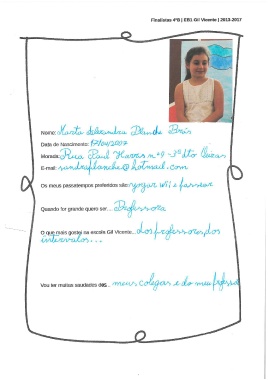 Finalistas 4ºB | EB1 Gil Vicente | 2013-2017
Nome: Marta Alexandra Blanche Brás
Data de Nascimento:
Morada: Rua Raul nº 9 - 3º dto
E-mail: sandrafblanche@hotmail.com
Os meus passatempos preferidos são: jogar wii e passear
Quando for grande quero ser... Professora
O que mais gostei na escola Gil Vicente... dos professores, dos
intervalos...
Vou ter muitas saudades dos... meus colegas e do meu professor